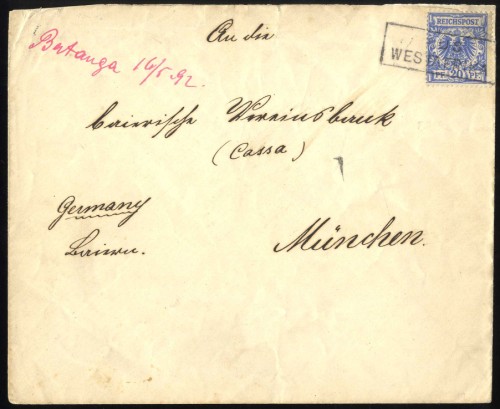 An die
REICHSPOST
Batanga 16/5 92.
WEST
baierische Vereinsbank
(Cassa)
Germany
München.
Baiern.